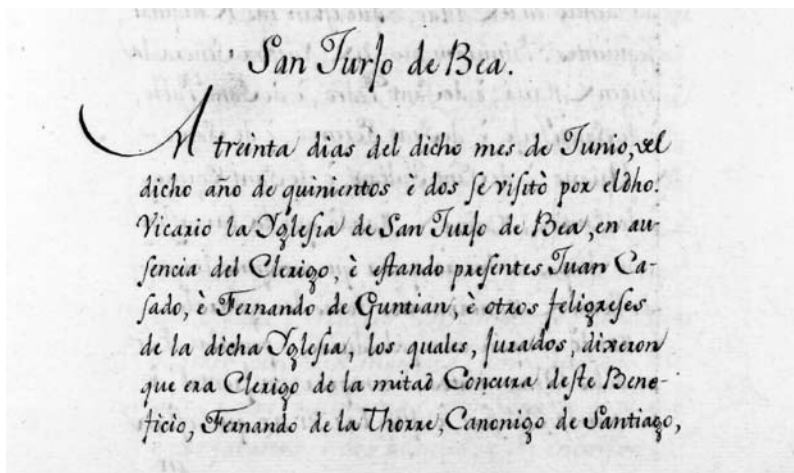 San Turso de Bea.
A treinta dias del dicho mes de Junio, del
dicho año de quinientos è dos se visitò por el dho.
Vicario la Yglesia de San Turso de Bea, en au-
sencia del Clerigo, è estando presentes Juan Ca-
sado, è Fernando de Guntian, è otros feligreses
de la dicha Yglesia, los quales, jurados, dixeron
que era Clerigo de la mitad Concura deste Bene-
ficio, Fernando de la Thorre, Canonigo de Santiago,